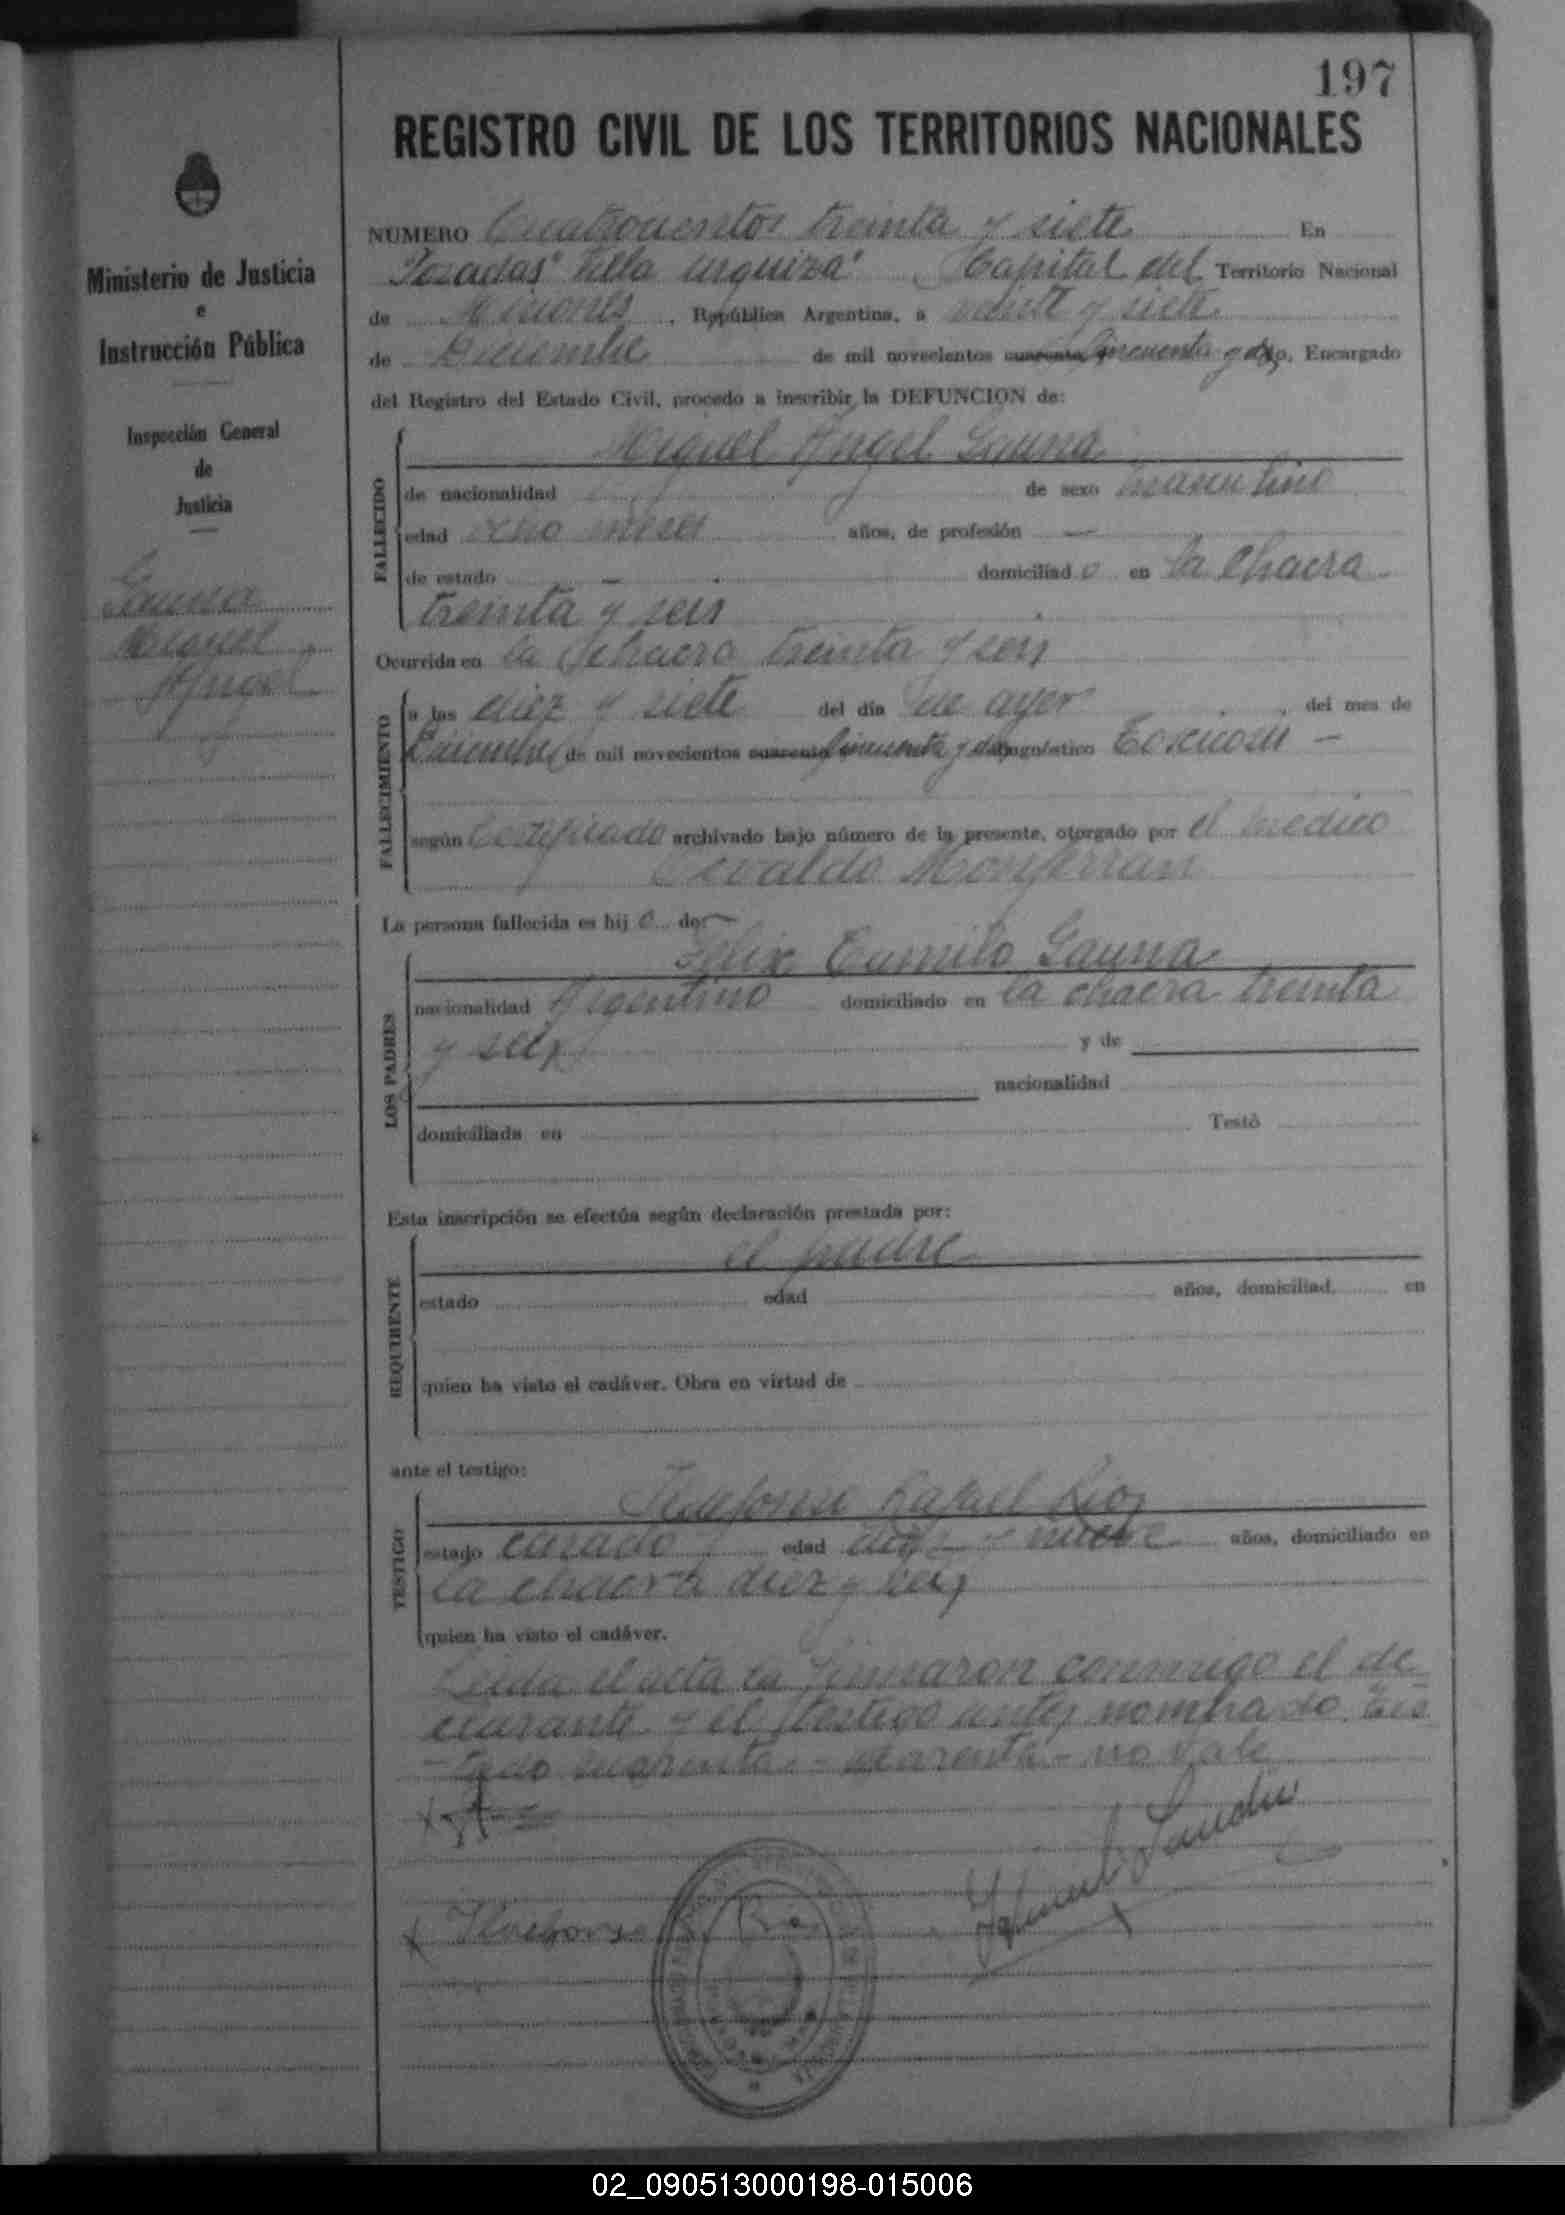 197
REGISTRO CIVIL DE LOS TERRITORIOS NACIONALES
Ministerio de Justicia
e
Instrucción Pública
Inspección General
de
Justicia
Gauna
Miguel
Angel
NUMERO Cuatrocientos treinta y siete En
Posadas "Villa Urquiza" Capital del Territorio Nacional
de Misiones, República Argentina, a veinte y siete
de Diciembre de mil novecientos cuarenta cincuenta y dos, Encargado
del Registro del Estado Civil, procedo a inscribir la DEFUNCION de:
FALLECIDO
Miguel Angel Gauna
de nacionalidad de sexo masculino
edad ocho meses años, de profesión —
de estado — domiciliado en la chacra
treinta y seis
Ocurrida en la chacra treinta y seis
FALLECIMIENTO
a las diez y siete del día de ayer del mes de
Diciembre de mil novecientos cuarenta cincuenta y dos diagnóstico Toxicosis —
según Certificado archivado bajo número de la presente, otorgado por el médico
Osvaldo Monferran
La persona fallecida es hijo de:
LOS PADRES
Felix Camilo Gauna
nacionalidad Argentino domiciliado en la chacra treinta
y seis y de
nacionalidad
domiciliada en Testó
Esta inscripción se efectúa según declaración prestada por:
REQUIRENTE
el padre
estado edad años, domiciliad en
quien ha visto el cadáver. Obra en virtud de
ante el testigo:
TESTIGO
Ildefonso Rafael Rios
estado casado edad diez y nueve años, domiciliado en
la chacra diez y seis
quien ha visto el cadáver.
Leida el acta la firmaron conmigo el de
clarante y el testigo antes nombrado. Tes
tado cuarenta - cuarenta - no vale
Ildefonso R. Rios
02_090513000198-015006